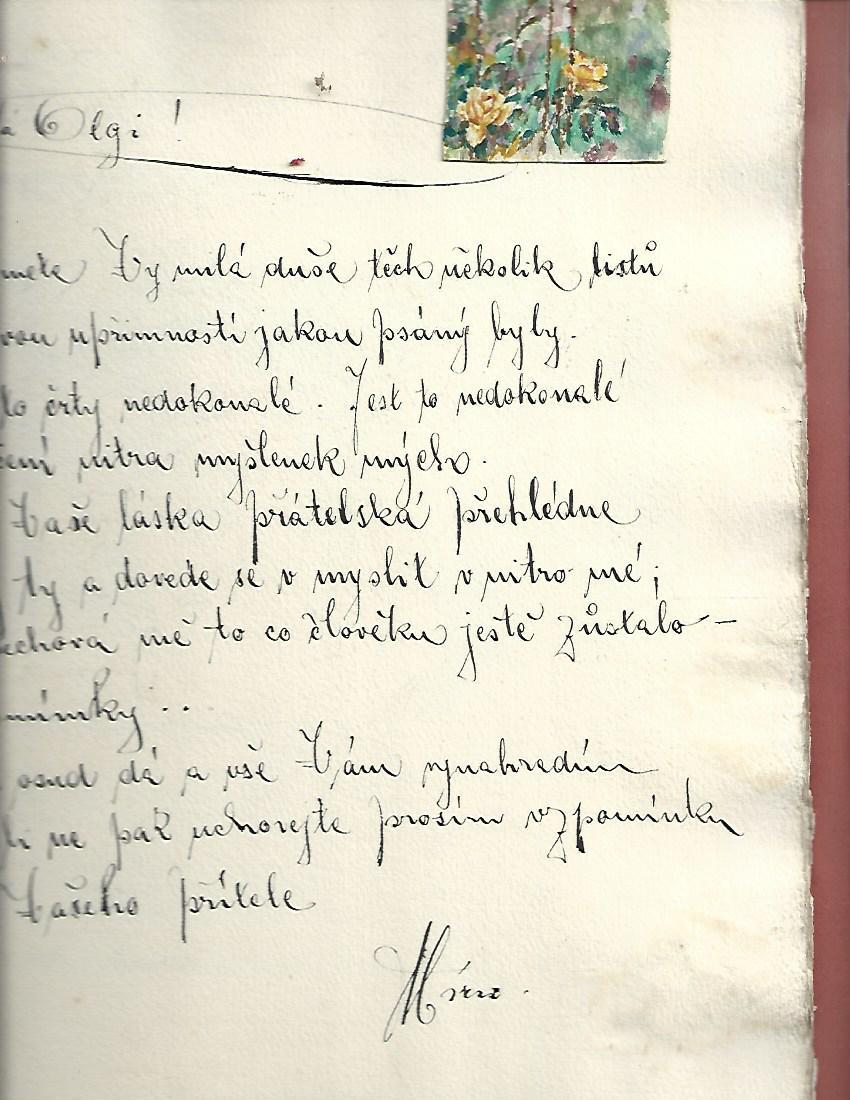 á Olgi!
mete Vy milá duše těch několik listů
vou upřimností jakou psány byly.
to črty nedokonalé. Jest to nedokonalé
ení nitra myšlenek mých.
Vaše láska přátelská přehlédne
ty a dovede se v myslit v nitro mé;
echová mě to co člověku ještě zůstalo –
mínky ..
osud dá a vše Vám vynahradím
li ne pak uchovejte prosím vzpomínku
Vašeho přítele